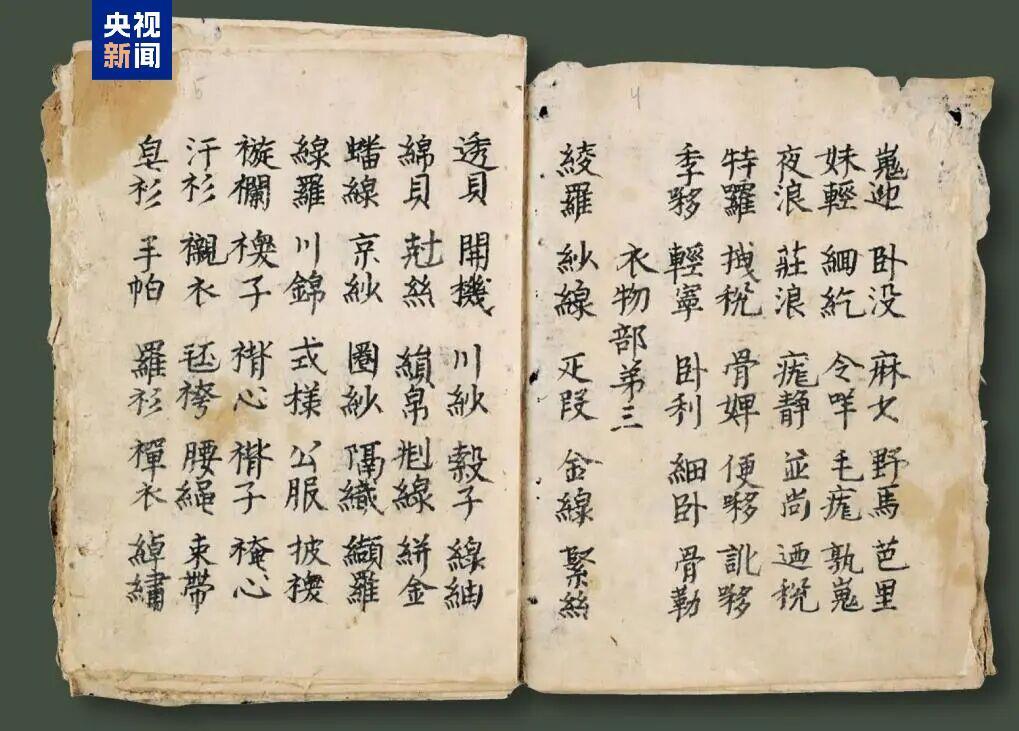 央视
新闻
4
嵬迎 卧没 麻女 野馬 芭里
妹輕 緬紇 令咩 毛庬 孰嵬
夜浪 莊浪 庬静 並尚 迺税
特羅 拽税 骨婢 便夥 訛夥
季夥 輕寧 卧利 細卧 骨勒
衣物部弟三
綾羅 紗線 疋段 金線 緊絲
5
透貝 開機 川紗 縠子 線紬
綿貝 尅絲 絹帛 線 絣金
蟠線 京紗 圈紗 隔織 纈羅
線羅 川錦 式樣 公服 披襖
襴 襖子 褙心 褙子 裺心
汗衫 襯衣 毡袴 腰繩 束帶
皂衫 手帕 羅衫 禪衣 綽繡